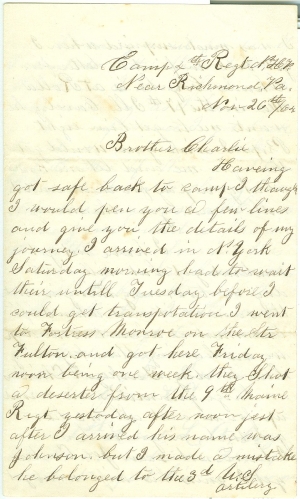 Camp 7th Regt N.H.V.
Near Richmond, Va.
Nov. 26th/64
Brother Charlie
Haveing
got safe back to camp I though
I would pen you a few lines
and give you the details of my
journey. I arrived in N. York
Saturday morning had to wait
their untill Tuesday before I
could get transpotation I went
to Fortress Monroe on the Str
Fulton, and got here Friday
noon being one week. they shot
a deserter from the 9th Maine
Regt yestoday after noon jest
after I arrived his name was
Johnson. but I made a mistake
he belonged to the 3d U.S.
artilery